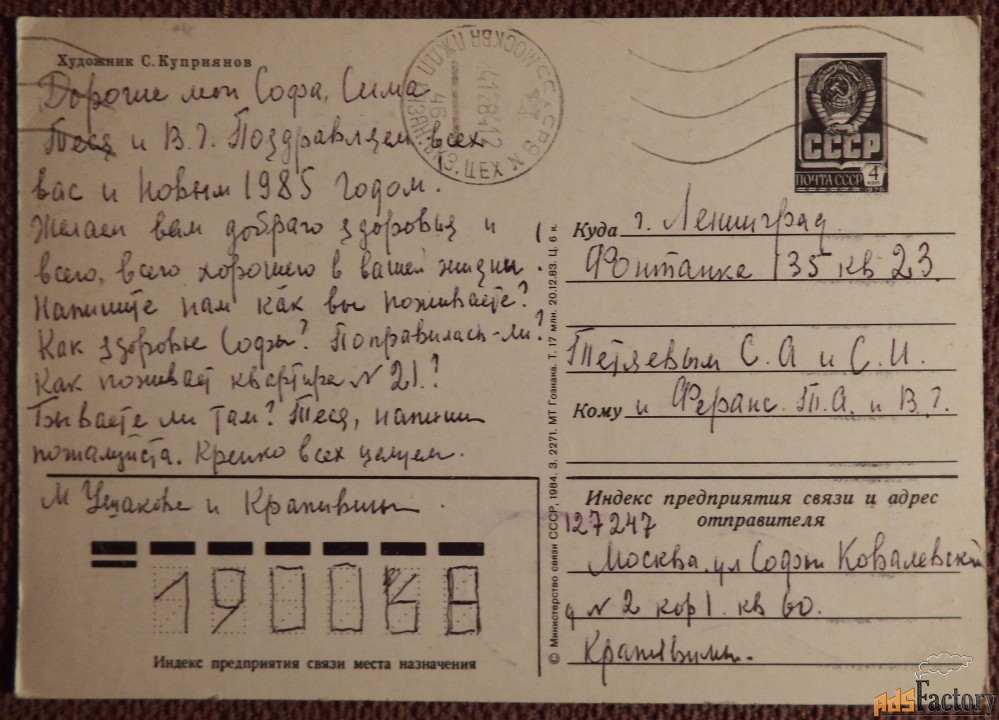 Художник С. Куприянов
Дорогие мои Софа, Сима
Теся и В. Г. Поздравляем всех
вас и Новым 1985 годом.
Желаем вам доброго здоровья и
всего, всего хорошего в вашей жизни.
Напишите нам как вы поживаете?
Как здоровье Софы? Поправилась-ли?
Как поживает квартира N 21.?
Бываете ли там? Теся, напиши
пожалуйста. Крепко всех целуем.
М Ушакова и Крапивины.
Индекс предприятия связи места назначения
© Министерство связи СССР, 1984. З. 2271. МТ Гознака. Т. 17 млн. 20.12.83. Ц. 6 к.
МОСКВА
ЦЕХ
СССР
ПОЧТА СССР
4 коп
1976
Куда г. Ленинград
Фонтанка 135 кв 23.
Тетяевым С. А и С. И.
Кому и Феранс. Т. А. и В. Г.
Индекс предприятия связи и адрес
отправителя
127247
Москва, ул Софьи Ковалевской
д N 2 кор 1. кв 60.
Крапивины.
AdsFactory